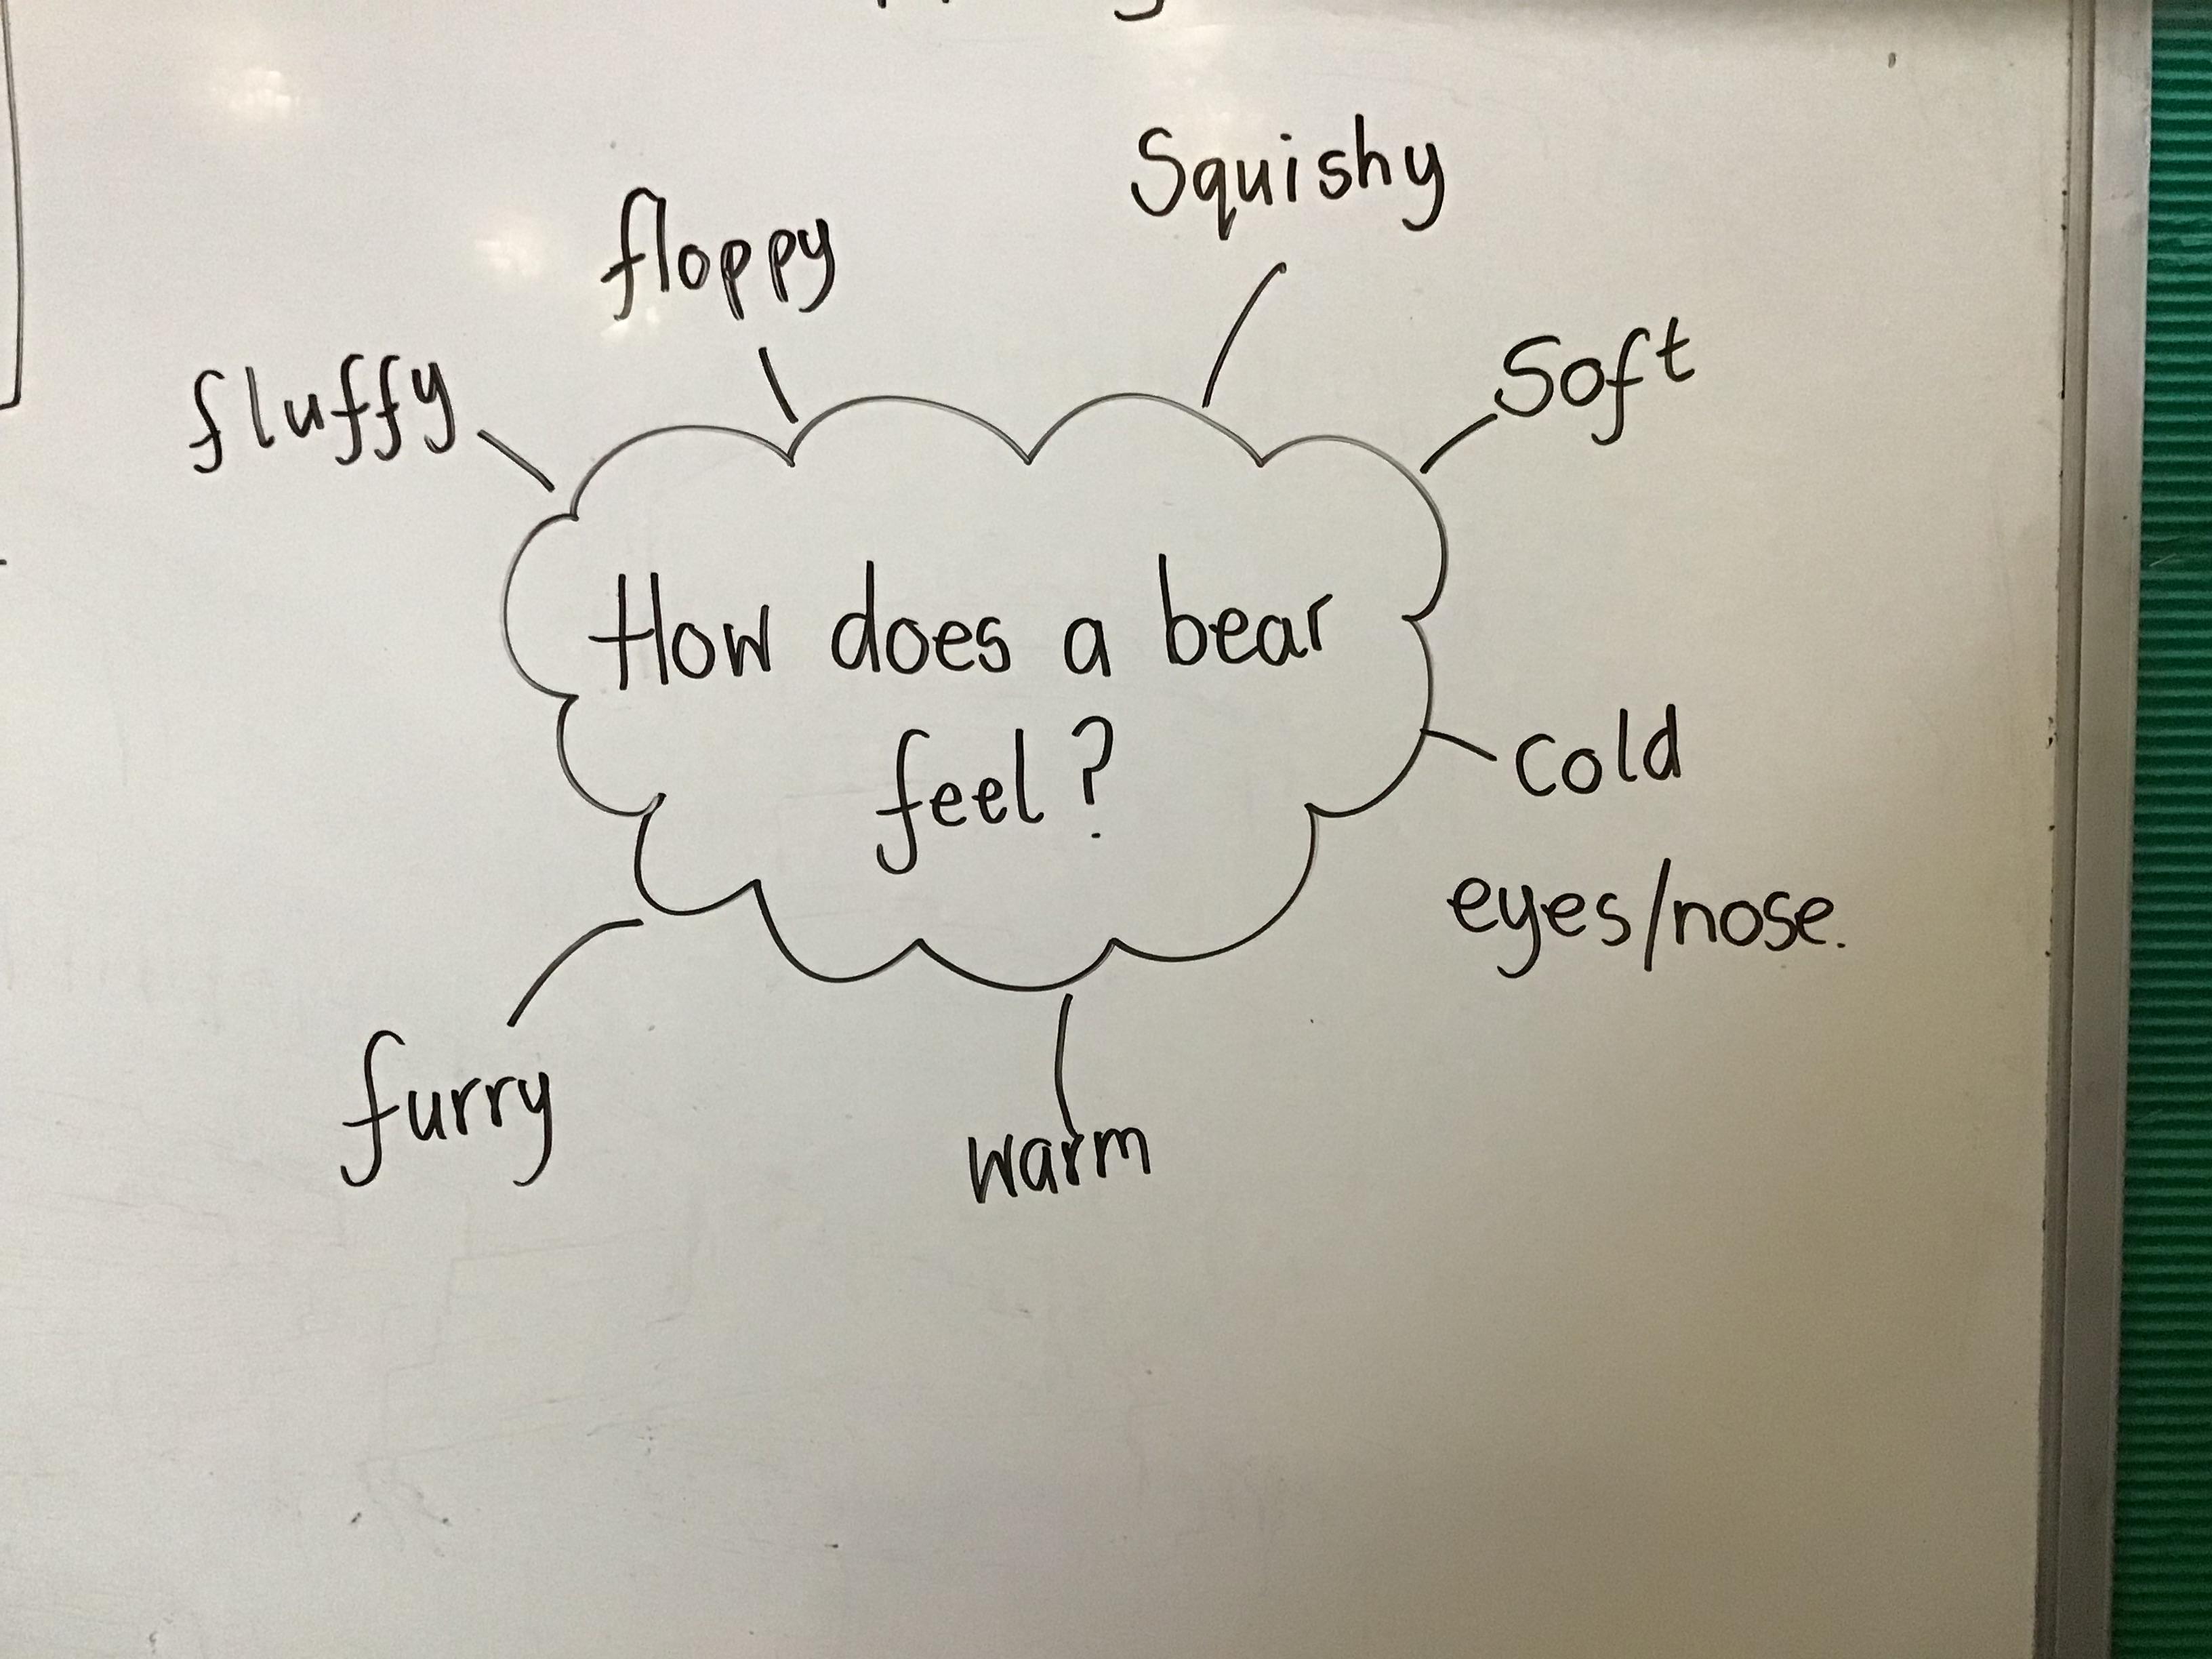 Squishy
floppy
Soft
fluffy
How does a bear
feel?
cold
eyes/nose.
furry
warm